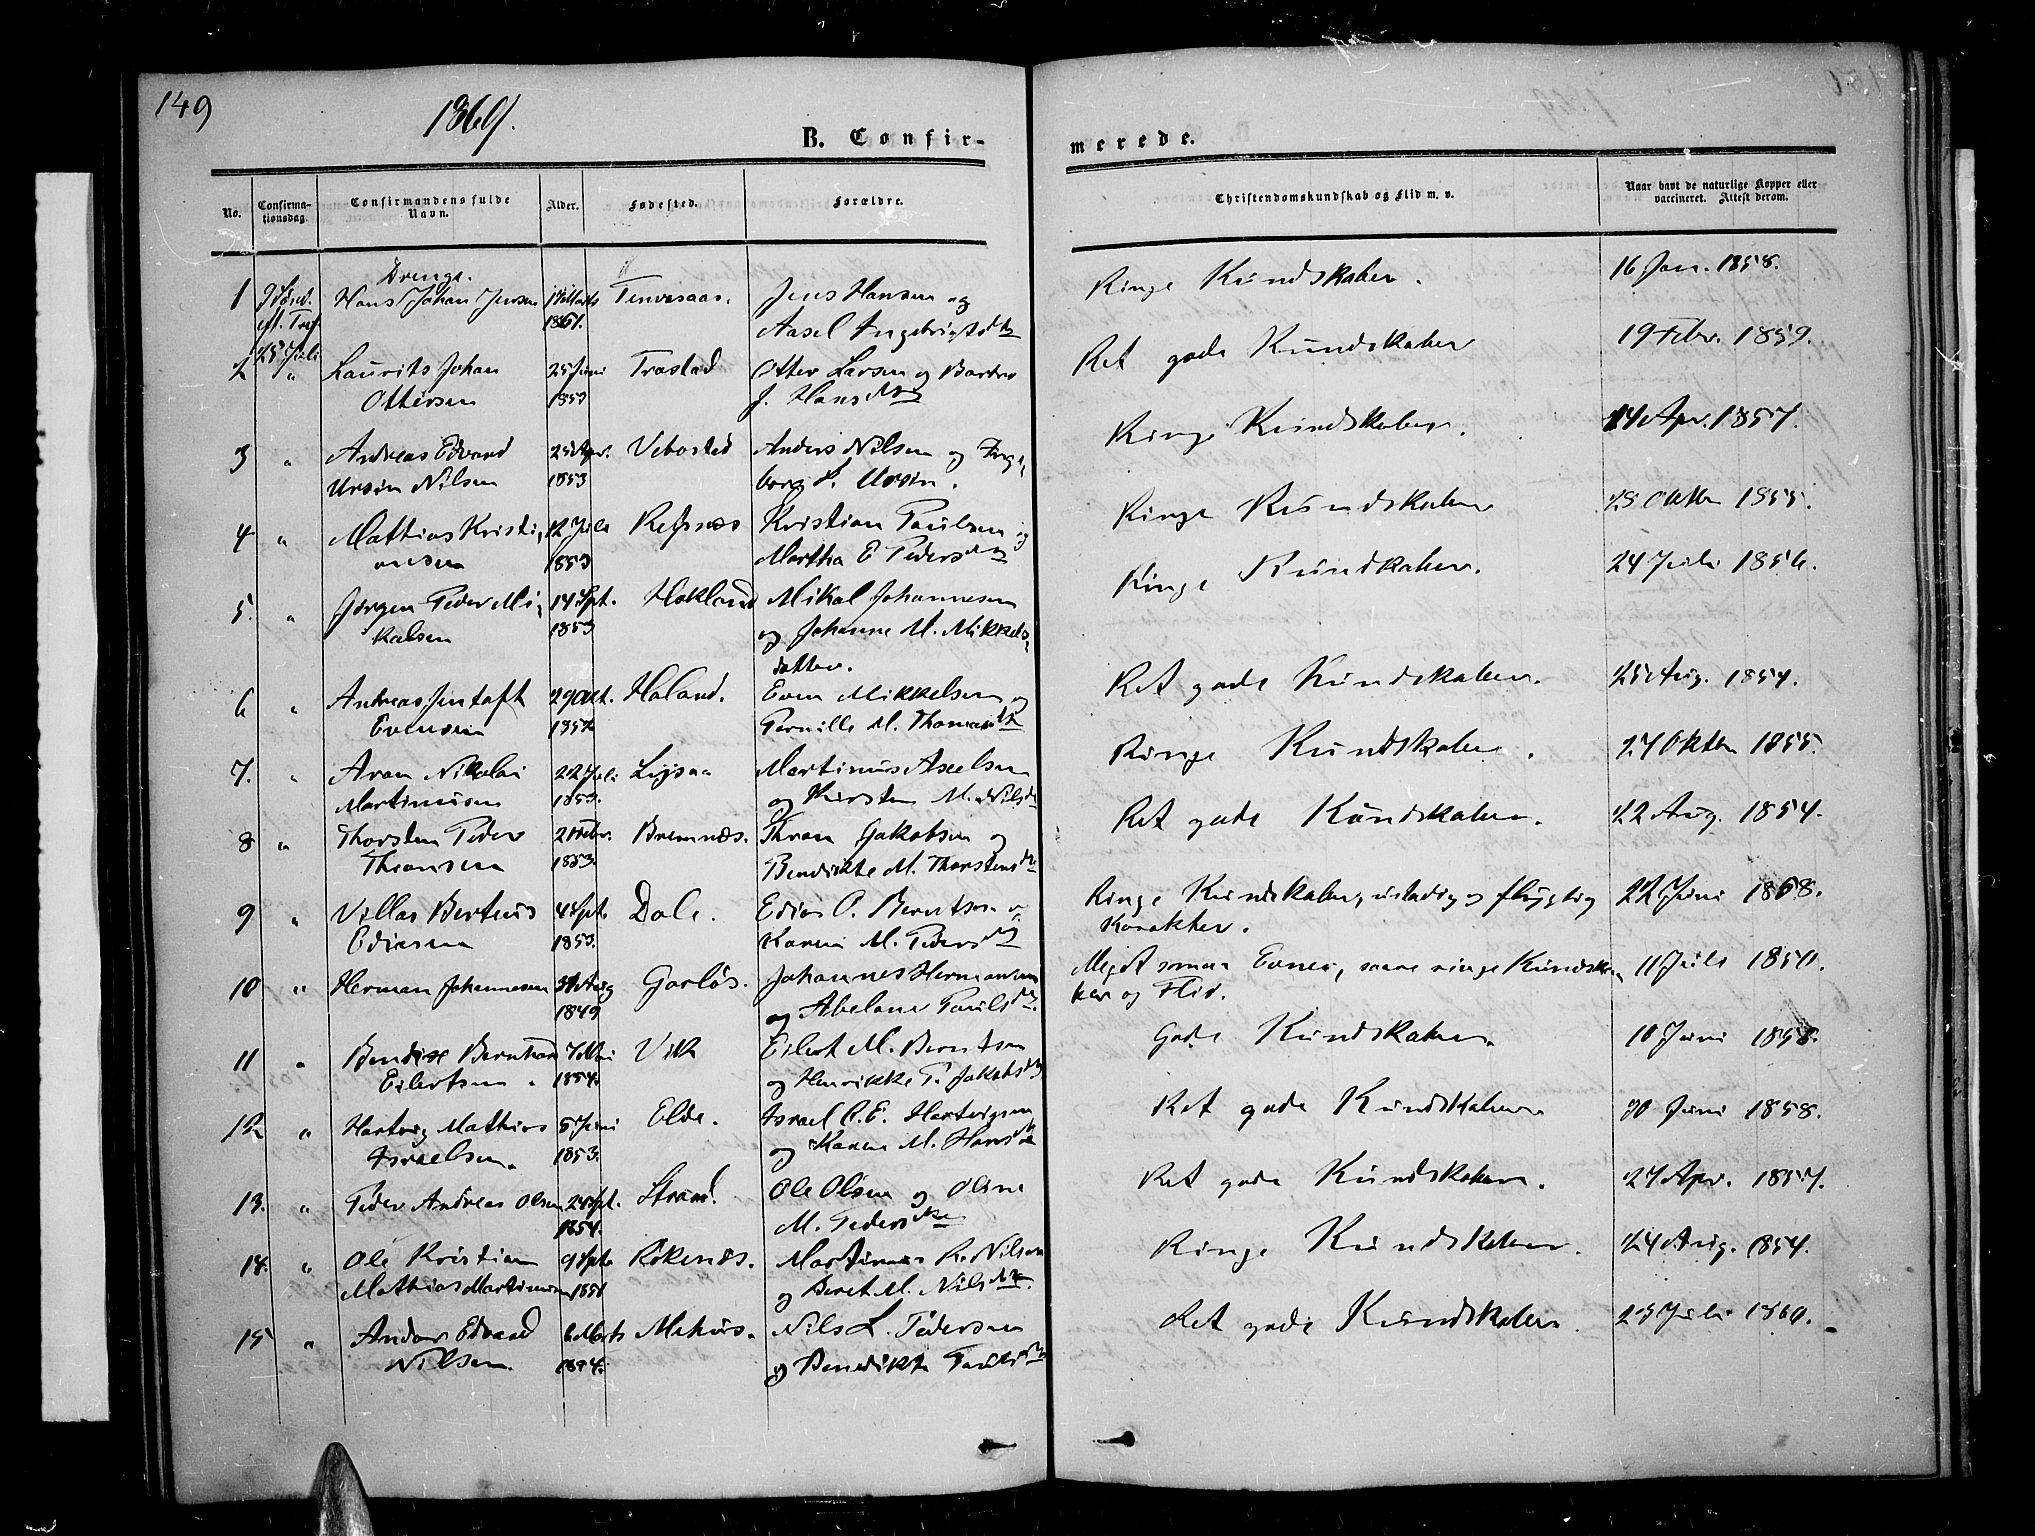 149
1869.
B. Confir-
merede.
No.
Confirma-
tionsdag.
Confirmandens fulde
Navn.
Alder.
Fødested.
Forældre.
Christendomskundskab og Flid m. v.
Naar havt de naturlige Kopper eller
vaccineret. Attest derom.
Drenge.
1 Hans Johan Jensen Marts Tenvasaas. Jens Hansen og Ringe Kundskaber. 16 Jan. 1858.
eft. Tref. Aasel Ingebrigtsdtr
25 Juli
2 " Laurits Johan 25 Juni Trastad Otter Larsen og Ret gode Kundskaber 19 Febr. 1859.
Ottersen 1853 J. Hansdtr
3 " Andreas Edvard 25 Apr. Vebostad Anders Nilsen og Inge- Ringe Kundskaber. 14 Apr. 1857.
Ursin Nilsen 1853 borg Ursin.
4 " Mathias Kristi- 12 Juli Refsnæs Kristian Paulsen og Ringe Kundskaber Oktbr 1855.
ansen 1853 Martha E Pedersdtr
5. " Jørgen Peder Mi- 14 Spt. Hokland Mikal Johannesen Ringe Kundskaber. 24 Juli 1856.
kalsen 1853 og Johanne M. Mikkels-
datter.
6 " Andreas Jentoft 29 Okt. Haland. Even Mikkelsen og Ret gode Kundskaber. 25 Aug. 1854.
Evensen Pernille M. Thomasdtr
7. " Aron Nikolai 22 Juli Martinus Axelsen Ringe Kundskaber. 27 Oktbr 1855.
Martinusen 1853. og Kirsten M. Nilsdtr
8 " Thorsten Peder Febr. Bremnæs. Thron Jakobsen og Ret gode Kundskaber. 22 Aug. 1854.
Thronsen 1853. Bendikte M. Thorstensdtr
9 " Villas Berteus 4 Spt. Dale. Edias P. Berntsen og Ringe Kundskaber, ustadig og flygtig 22 Juni 1868.
Ediasen 1853. Karen M. Pedersdtr Karakter.
10 " Herman Johannesen Aug Garløs. Johannes Hermansen Meget smaa Evner, saare ringe Kundska- 11 Juli 1850.
1849 og Abelone Paulsdtr. ber og Flid.
11 " Bendix Bernhard 7 Mai Vik Eilert M. Berntsen Gode Kundskaber. 10 Juni 1858.
Eilertsen. 1854. og Henrikke P. Jakobsdtr
12 " Hartvig Mathias 5 Juni Elde. Israel C. E. Hartvigsen Ret gode Kundskaber 30 Juni 1858.
Israelsen. 1853. og Karen M. Hansdtr
13. " Peder Andreas Olsen Spt. Strand. Ole Olsen og Oline Ret gode Kundskaber. 27 Apr. 1857.
1854. M. Pedersdtr
14. " Ole Kristian 9 Spt. Røkenæs. Martinus R. Nilsen Ringe Kundskaber. 24 Aug. 1854.
Mathias Martinusen og Beret M. Nilsdtr.
15 " Andor Edvard 6 Marts Melvær. Nils L. Pedersen Ret gode Kundskaber. 23 Juli 1860.
Nilsen. 1854. og Benedikte Paulsdtr